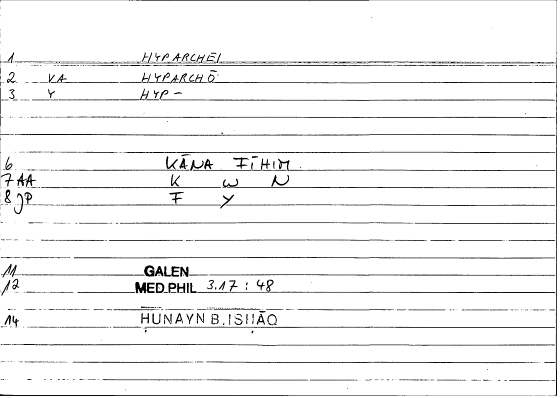 1 HYPARCHEI
2 VA HYPARCHŌ
3 Y HYP-
6 KĀNA FĪHIM
7 AA K W N
8 JP F Y
11 GALEN
12 MED.PHIL 3.17 : 48
14 ḤUNAYN B.ISḤĀQ